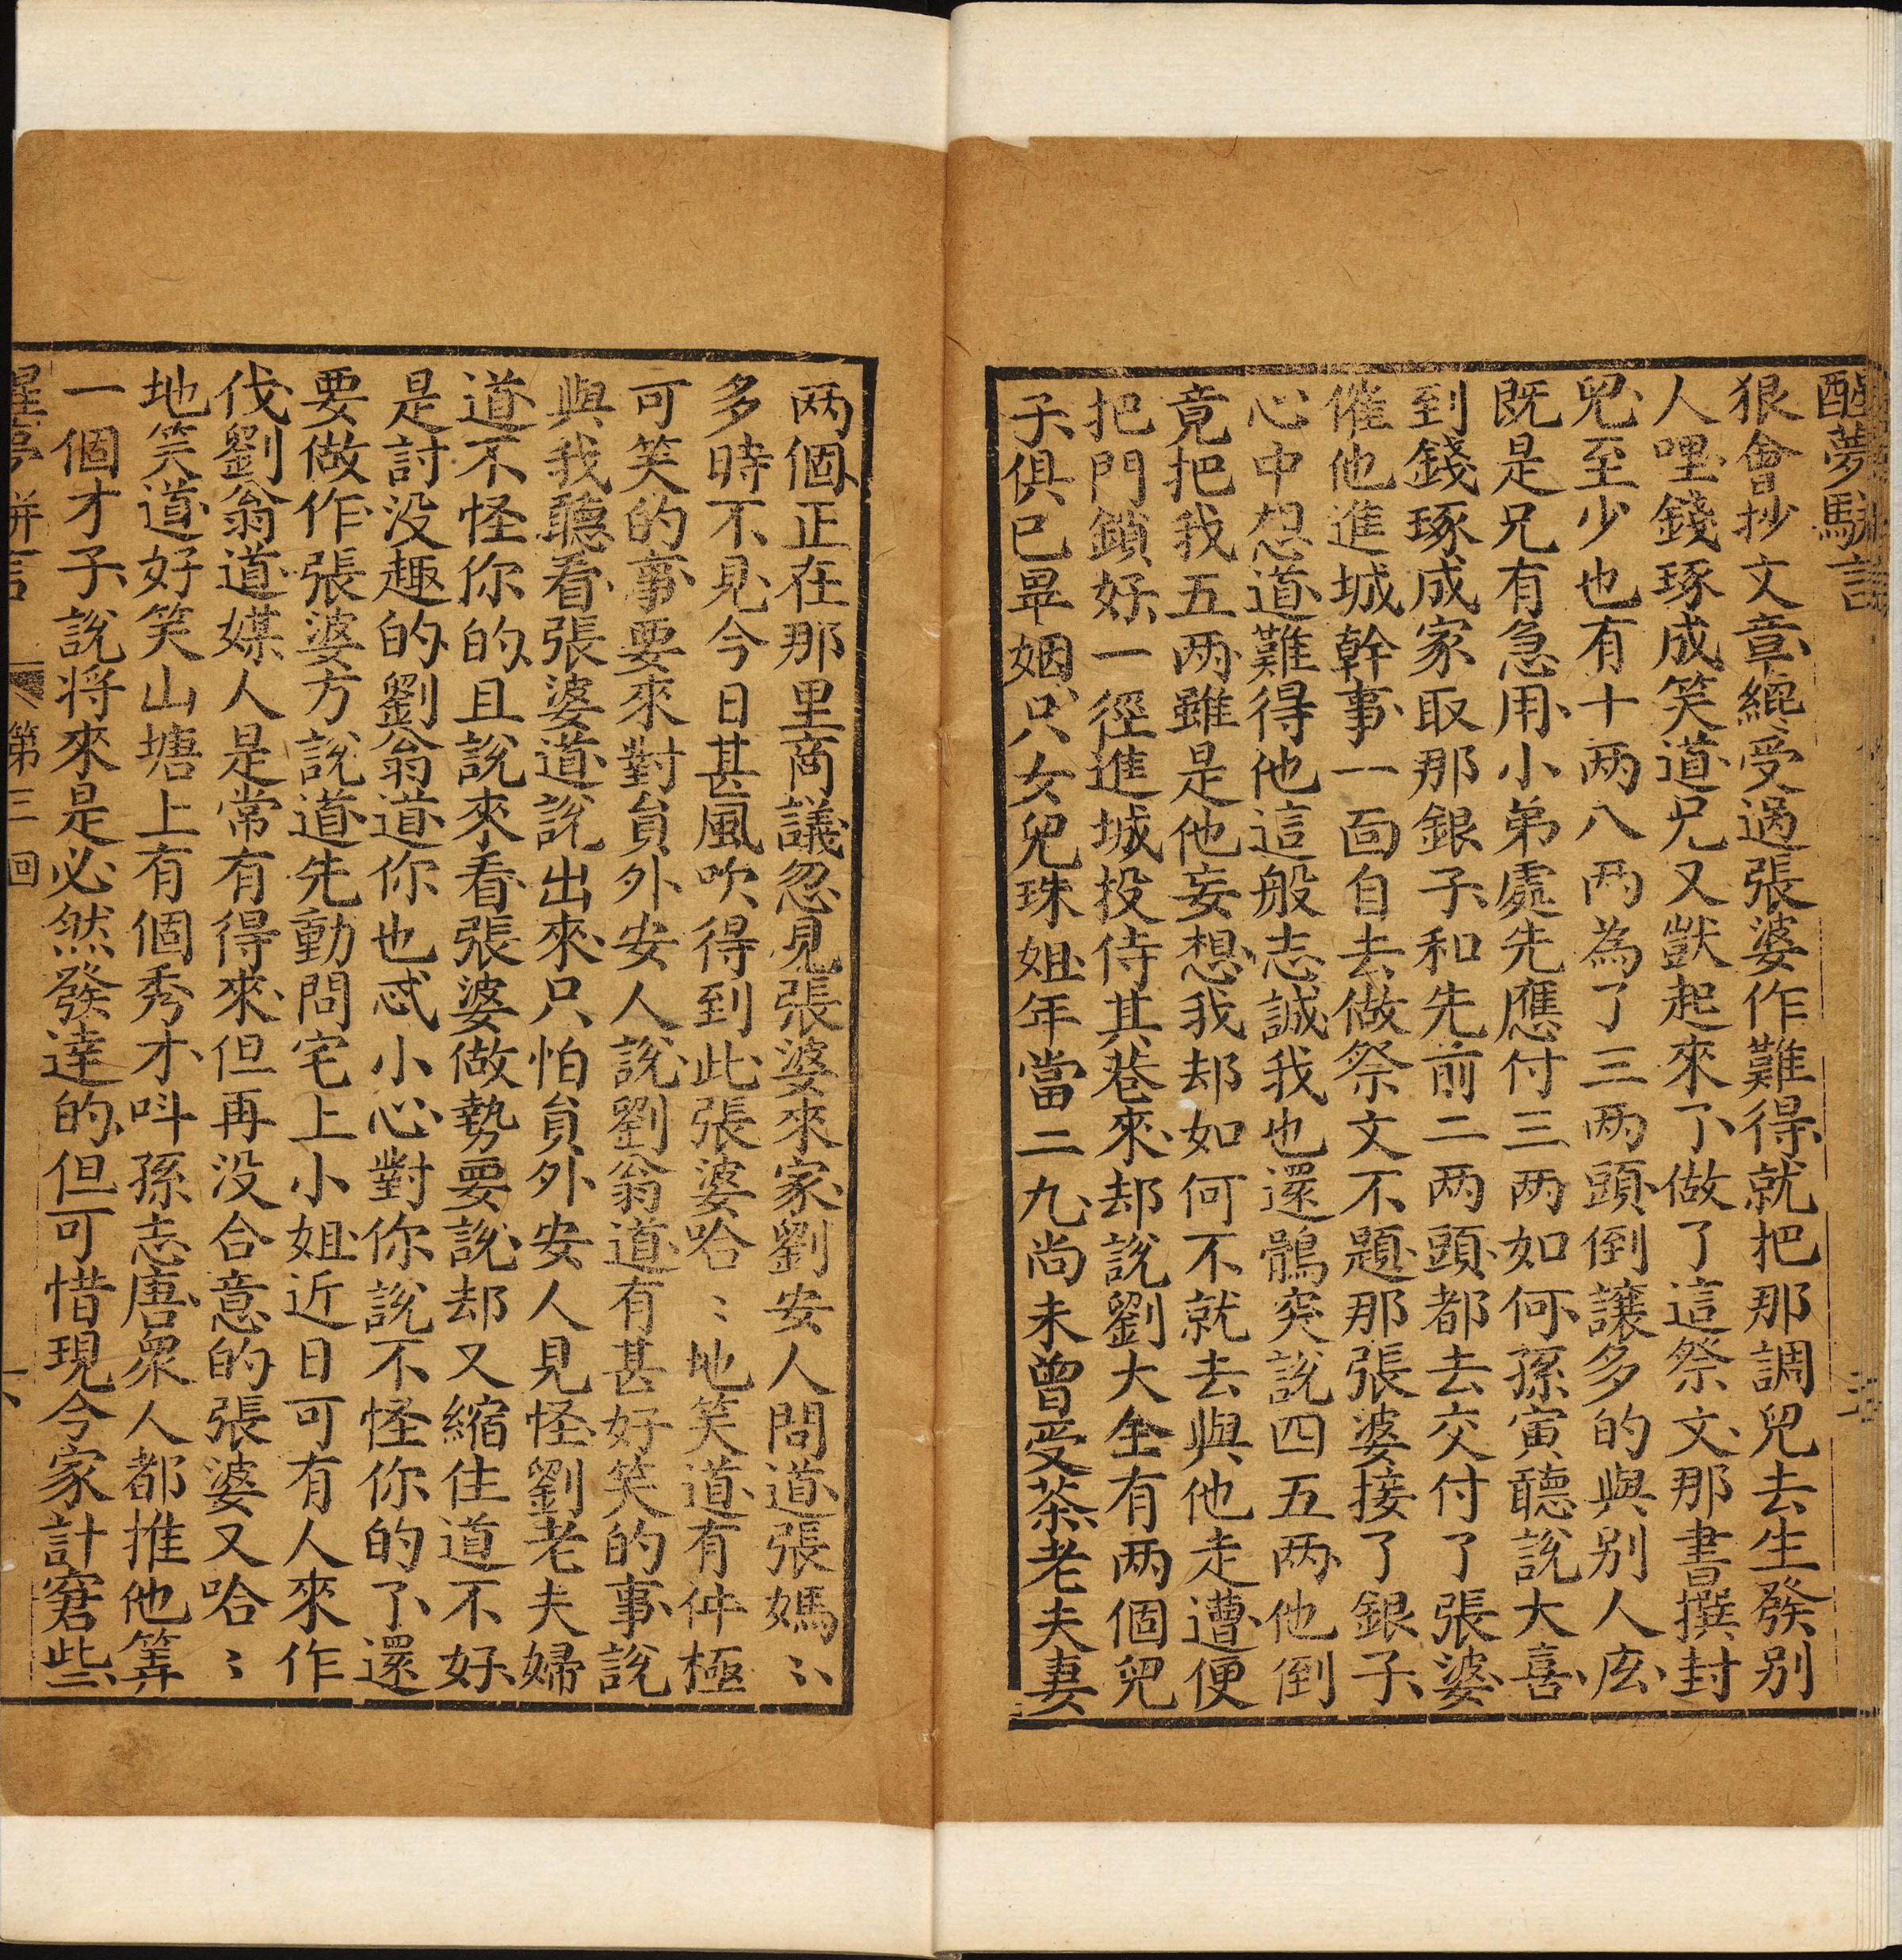 醒夢駢言
狠會抄文章纔受過張婆作難得就把那調兒去生發别
人哩錢琢成笑道兄又獃起來了做了這祭文那書撰封
兒至少也有十两八两為了三两頭倒讓多的與别人庅
既是兄有急用小弟處先應付三两如何孫寅聽說大喜
到錢琢成家取那銀子和先前二两頭都去交付了張婆
催他進城幹事一面自去做祭文不題那張婆接了銀子
心中想道難得他這般志誠我也還鶻突說四五两他倒
竟把我五两雖是他妄想我却如何不就去與他走遭便
把門鎖好一徑進城投侍其巷來却說劉大全有两個兒
子俱已畢姻只女兒珠姐年當二九尚未曾受茶老夫妻
两個正在那里商議忽見張婆來家劉安人問道張媽〻
多時不見今日甚風吹得到此張婆哈〻地笑道有件極
可笑的事要來對員外安人說劉翁道有甚好笑的事說
與我聽看張婆道說出來只怕員外安人見怪劉老夫婦
道不怪你的且說來看張婆做勢要說却又縮住道不好
是討没趣的劉翁道你也忒小心對你說不怪你的了還
要做作張婆方說道先動問宅上小姐近日可有人來作
伐劉翁道媒人是常有得來但再没合意的張婆又哈〻
地笑道好笑山塘上有個秀才呌孫志唐衆人都推他筭
一個才子說将來是必然發達的但可惜現今家計窘些
醒夢駢言 第三回